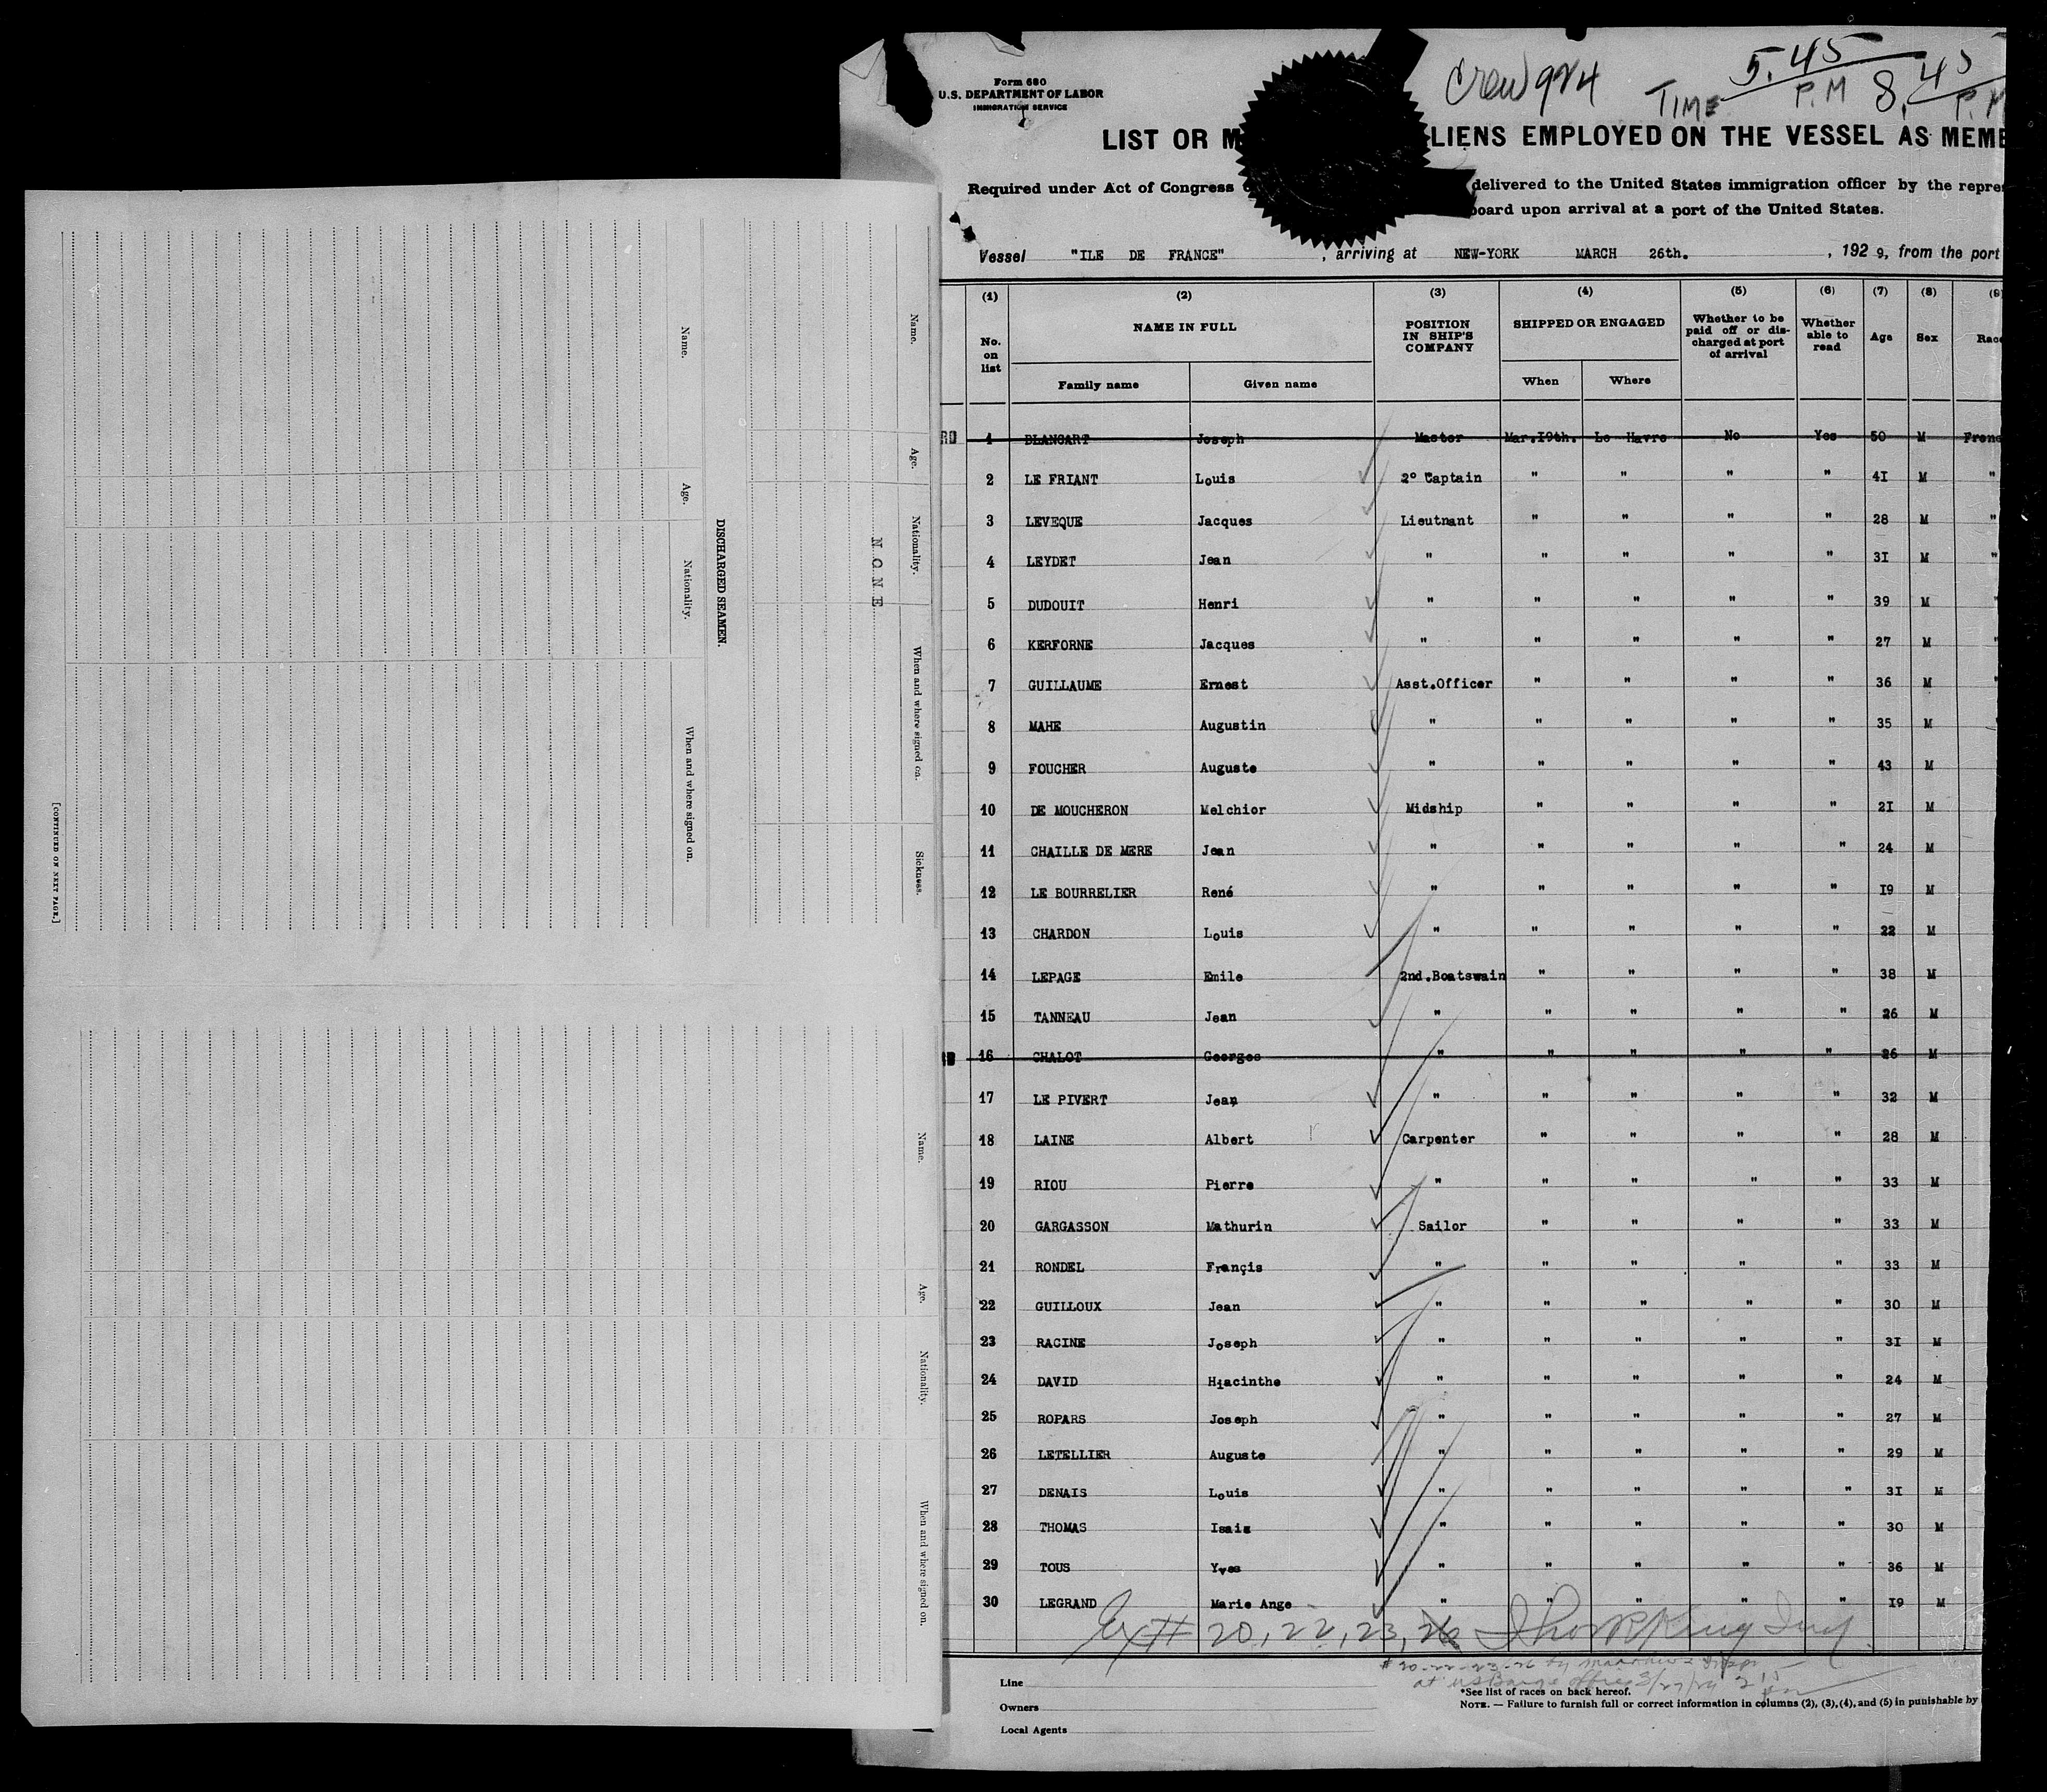 Name.
Age.
Nationality.
When and where signed on.
Sickness.
N O N E
DISCHARGED SEAMEN.
Name.
Age.
Nationality.
When and where signed on.
[CONTINUED ON NEXT PAGE.]
Name.
Age.
Nationality.
When and where signed on.
Form 680
U.S. DEPARTMENT OF LABOR
IMMIGRATION SERVICE
Crew 924 TIME 5.45 P.M 8.45 P.M
LIST OR M LIENS EMPLOYED ON THE VESSEL AS MEMB
Required under Act of Congress delivered to the United States immigration officer by the repres
board upon arrival at a port of the United States.
Vessel "ILE DE FRANCE", arriving at NEW-YORK MARCH 26th., 192 9, from the port
(1) (2) (3) (4) (5) (6) (7) (8) (9)
No. on list NAME IN FULL POSITION IN SHIP'S COMPANY SHIPPED OR ENGAGED Whether to be paid off or discharged at port of arrival Whether able to read Age Sex Race
Family name Given name When Where
RD 1 BLANCART Joseph Master Mar.I9th. Le Havre No Yes 50 M Frenc
2 LE FRIANT Louis 2° Captain " " " " 4I M "
3 LEVEQUE Jacques Lieutnant " " " " 28 M "
4 LEYDET Jean " " " " " 3I M "
5 DUDOUIT Henri " " " " " 39 M "
6 KERFORNE Jacques " " " " " 27 M "
7 GUILLAUME Ernest Asst.Officer " " " " 36 M "
8 MAHE Augustin " " " " " 35 M
9 FOUCHER Auguste " " " " " 43 M
10 DE MOUCHERON Melchior Midship " " " " 2I M
11 CHAILLE DE MERE Jean " " " " " 24 M
12 LE BOURRELIER René " " " " " I9 M
13 CHARDON Louis " " " " " 22 M
14 LEPAGE Emile 2nd.Boatswain " " " " 38 M
15 TANNEAU Jean " " " " " 26 M
16 CHALOT Georges " " " " " 26 M
17 LE PIVERT Jean " " " " " 32 M
18 LAINE Albert Carpenter " " " " 28 M
19 RIOU Pierre " " " " " 33 M
20 GARGASSON Mathurin Sailor " " " " 33 M
21 RONDEL Françis " " " " " 33 M
22 GUILLOUX Jean " " " " " 30 M
23 RACINE Joseph " " " " " 3I M
24 DAVID Hiacinthe " " " " " 24 M
25 ROPARS Joseph " " " " " 27 M
26 LETELLIER Auguste " " " " " 29 M
27 DENAIS Louis " " " " " 3I M
28 THOMAS Isaie " " " " " 30 M
29 TOUS Yves " " " " " 36 M
30 LEGRAND Marie Ange " " " " " I9 M
20, 22, 23, 26
# 20-22-23-26 by
at US Barge Office 3/27/29
Line
Owners
Local Agents
*See list of races on back hereof.
NOTE. — Failure to furnish full or correct information in columns (2), (3), (4), and (5) in punishable by